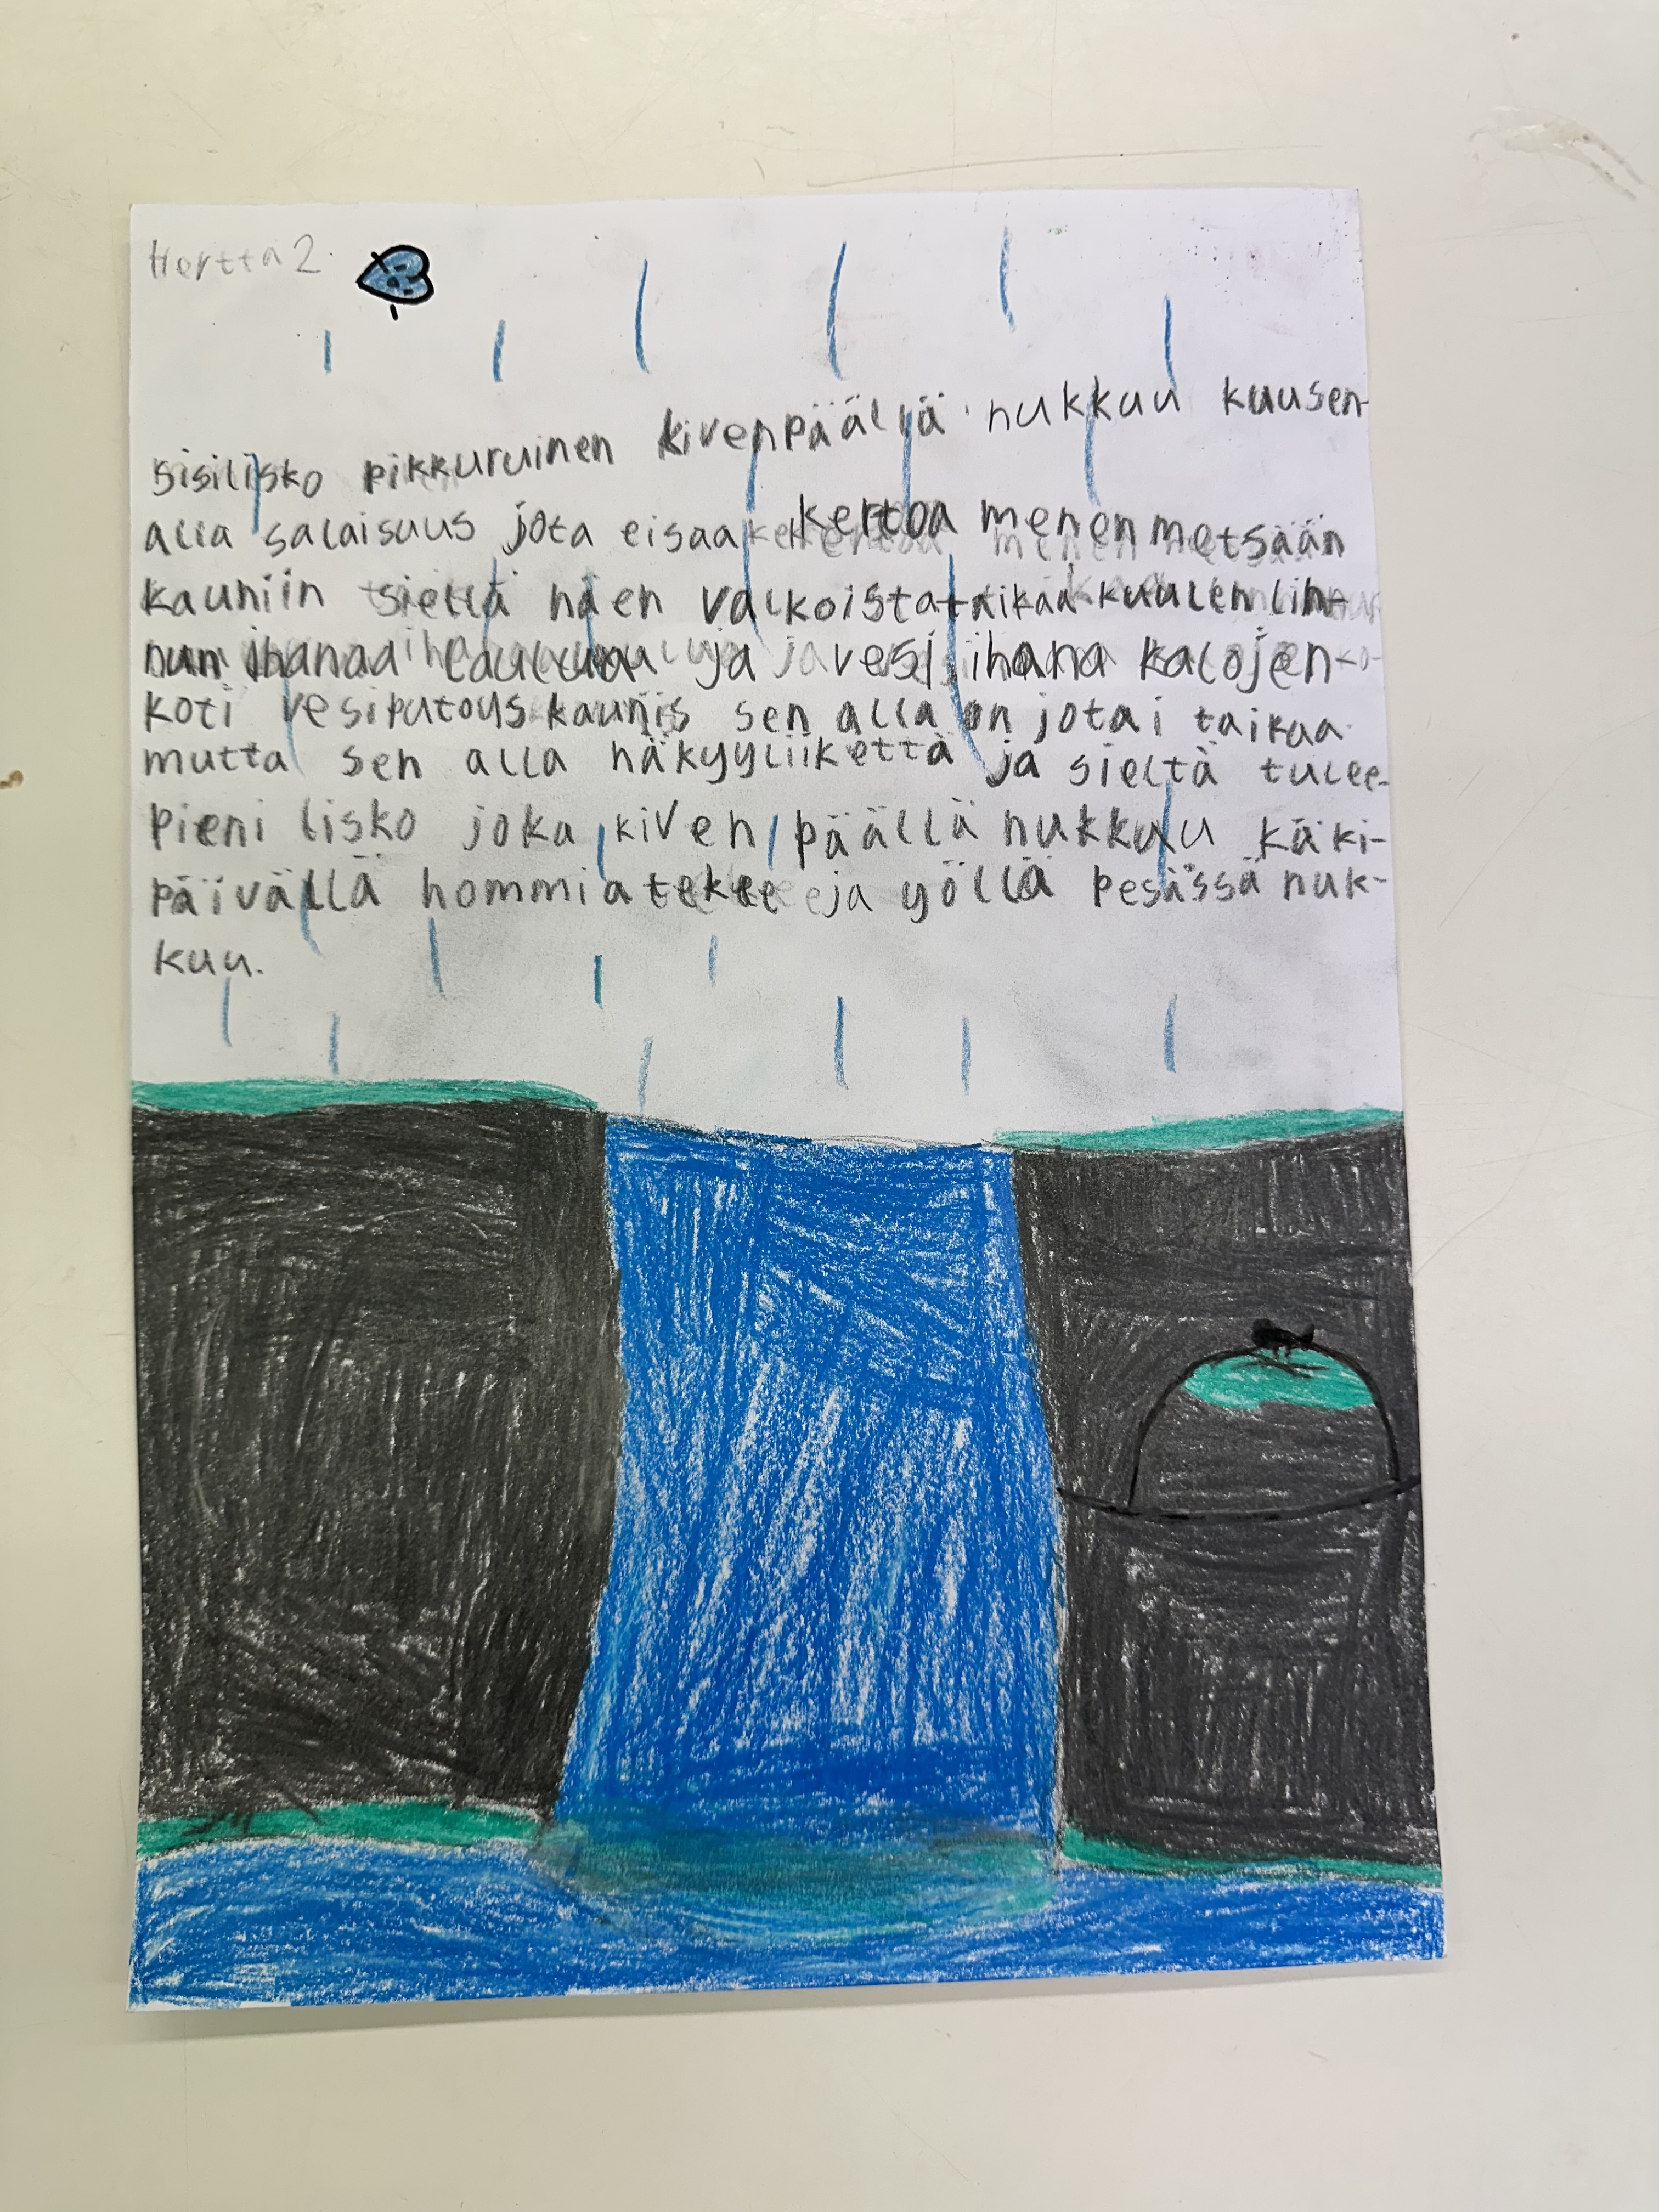 Hertta 2.
sisilisko pikkuruinen kivenpäällä nukkuu kuusen-
alla salaisuus jota eisaa kertoa menen metsään
kauniin siellä näen valkoista taikaa kuulen lin-
nun ihanaa laulua ja vesi ihana kalojen-
koti vesiputous kaunis sen alla on jotai taikaa
mutta sen alla näkyyliikettä ja sieltä tulee-
pieni lisko joka kiven päällä nukkuu käki-
päivällä hommia tekee ja yöllä pesässä nuk-
kuu.